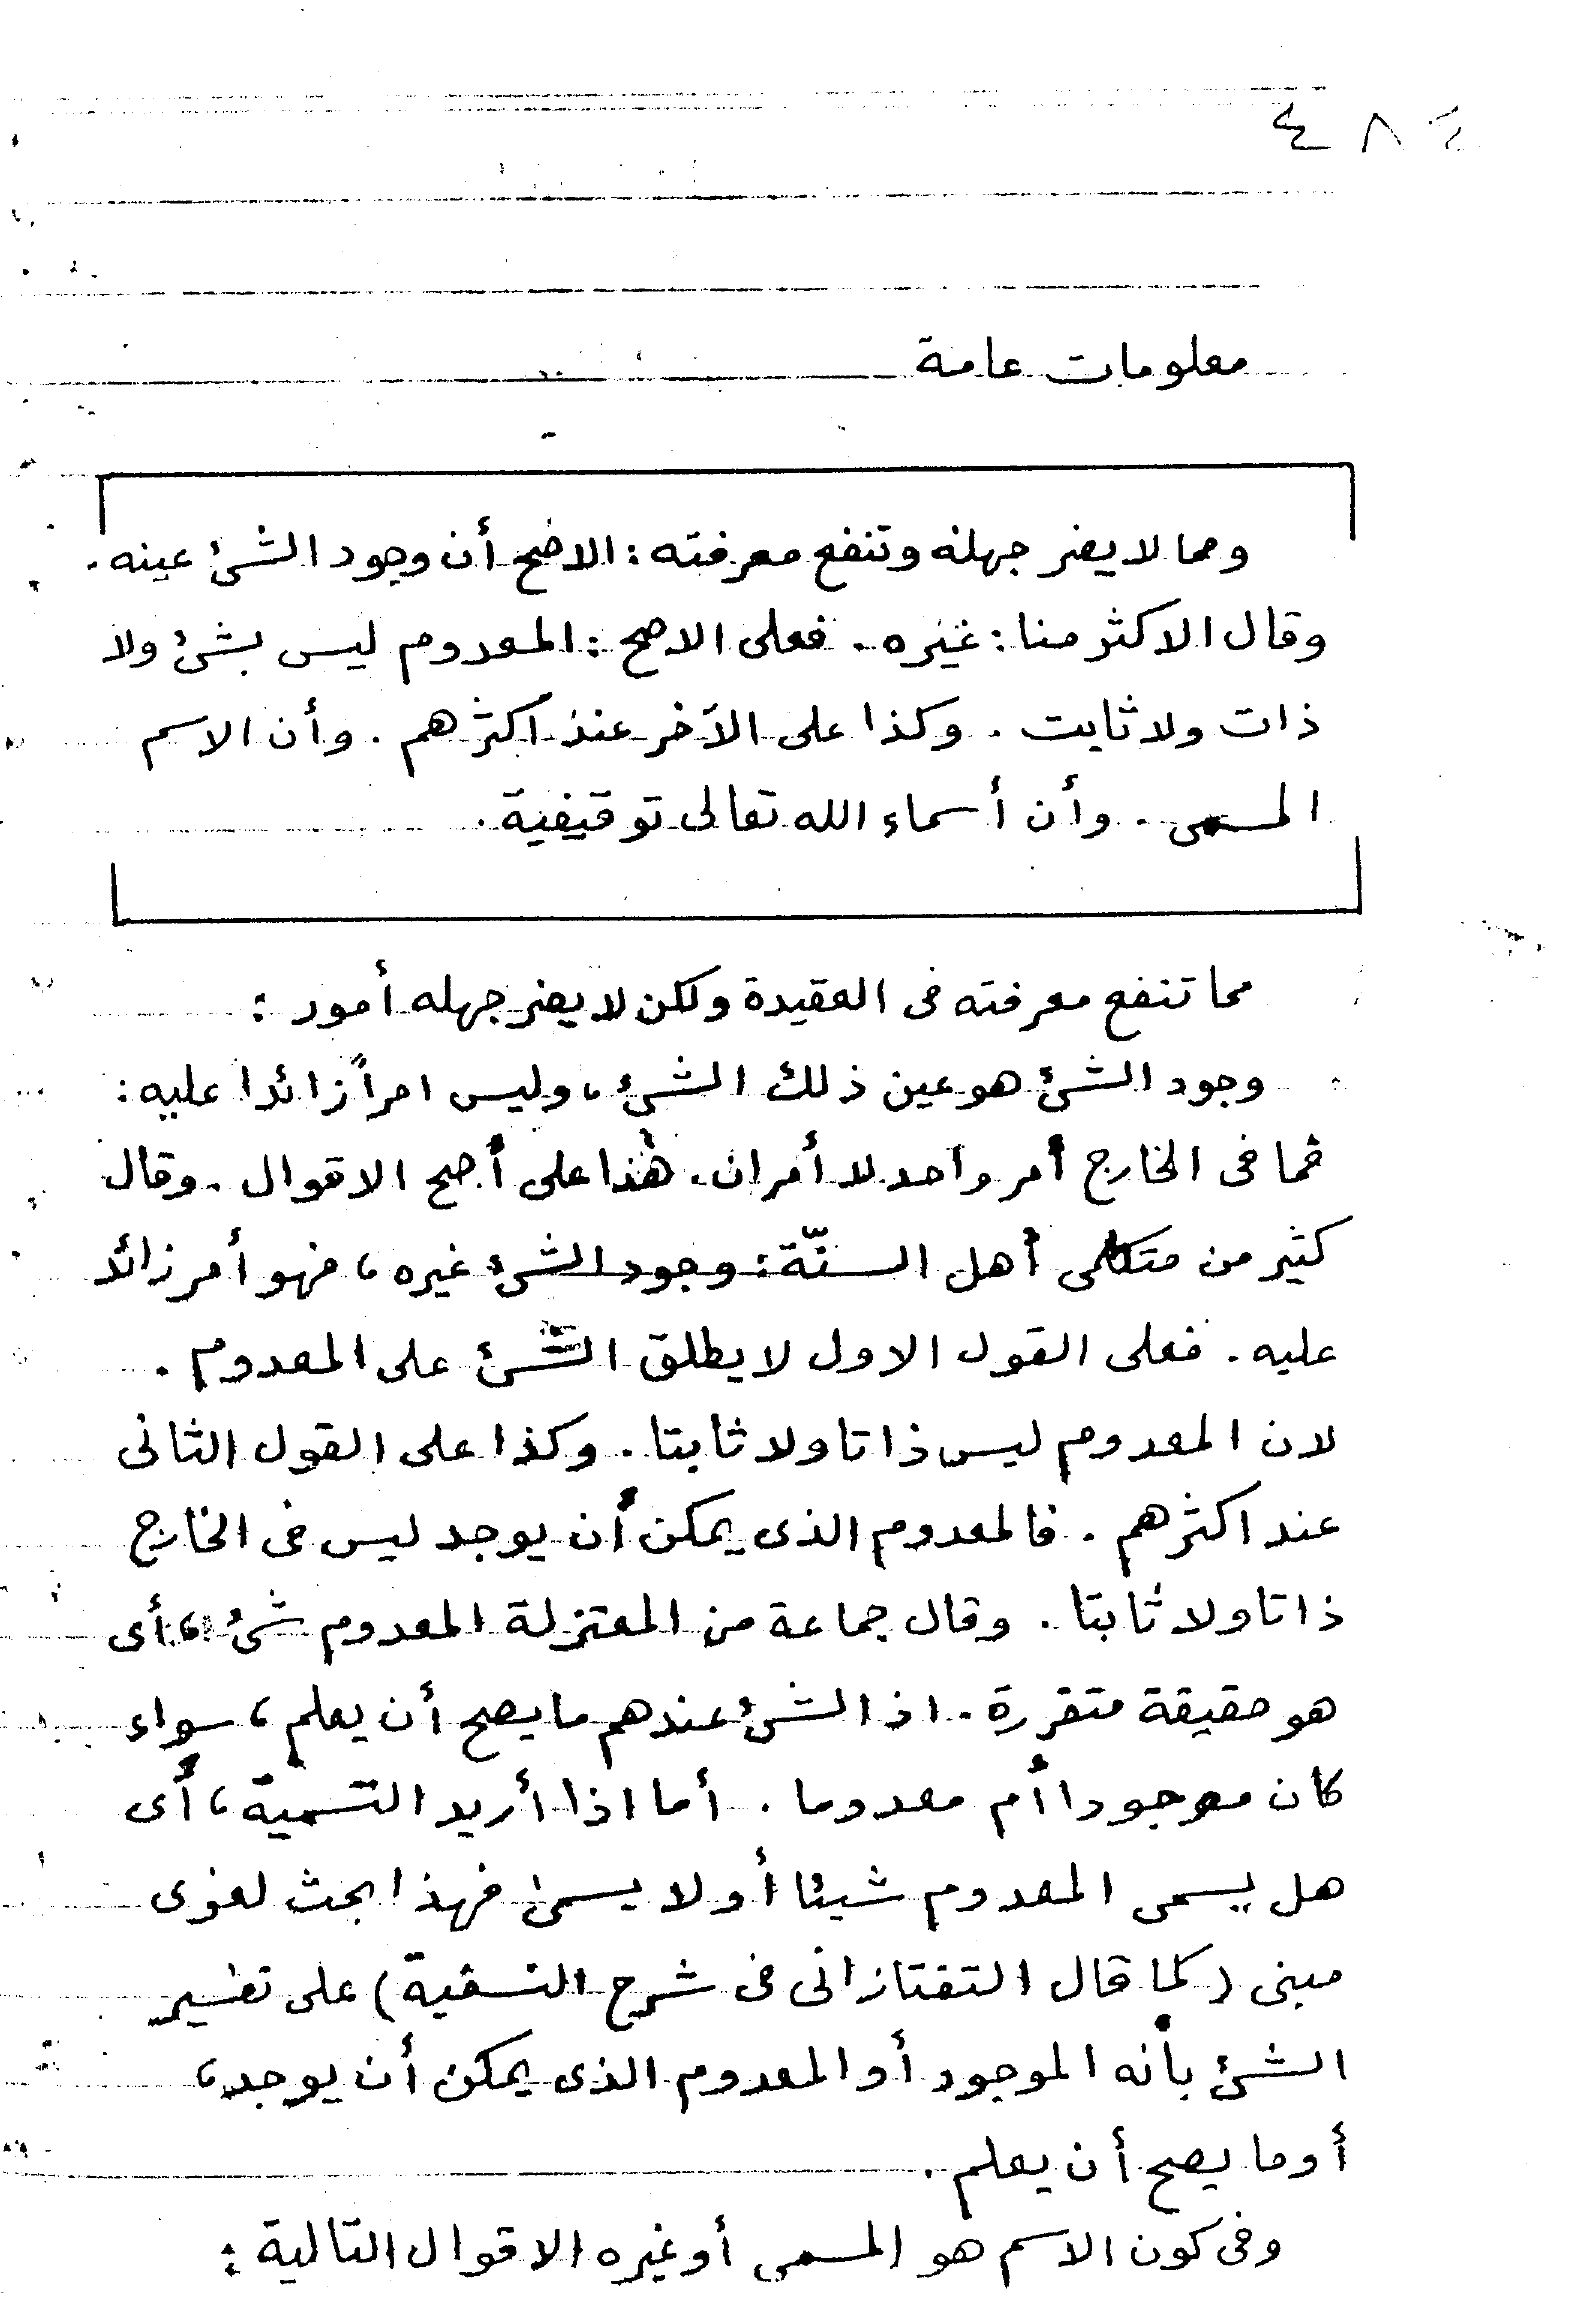 ٤٨٤
معلومات عامة
ومما لا يضر جهله وتنفع معرفته : الاصح أن وجود الشئ عينه .
وقال الاكثر منا : غيره . فعلى الاصح : المعدوم ليس بشئ ولا
ذات ولا ثابت . وكذا على الآخر عند اكثرهم . وأن الاسم
المسمى . وأن أسماء الله تعالى توقيفية .
مما تنفع معرفته فى العقيدة ولكن لا يضر جهله أمور :
وجود الشئ هو عين ذلك الشئ ، وليس امراً زائدا عليه :
فما فى الخارج أمر واحد لا أمران . هذا على أصح الاقوال . وقال
كثير من متكلمى أهل السنّة : وجود الشئ غيره ، فهو أمر زائد
عليه . فعلى القول الاول لا يطلق الشئ على المعدوم .
لان المعدوم ليس ذاتا ولا ثابتا . وكذا على القول الثانى
عند اكثرهم . فالمعدوم الذى يمكن أن يوجد ليس فى الخارج
ذاتا ولا ثابتا . وقال جماعة من المعتزلة المعدوم شئ ، أى
هو حقيقة متقررة . اذ الشئ عندهم ما يصح أن يعلم ، سواء
كان موجودا أم معدوما . أما اذا أريد التسمية ، أى
هل يسمى المعدوم شيئا أو لا يسمى فهذا بحث لغوى
مبنى ( كما قال التفتازانى فى شرح النسفية ) على تفسير
الشئ بأنه الموجود أو المعدوم الذى يمكن أن يوجد ،
أو ما يصح أن يعلم .
وفى كون الاسم هو المسمى أو غيره الاقوال التالية :